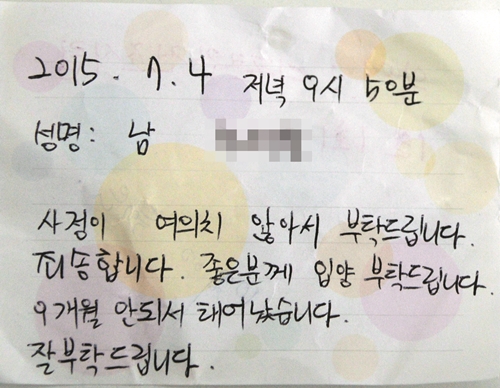 2015. 7. 4 저녁 9시 50분
성명: 남
사정이 여의치 않아서 부탁드립니다.
죄송합니다. 좋은분께 입양 부탁드립니다.
9개월 안되서 태어났습니다.
잘부탁드립니다.